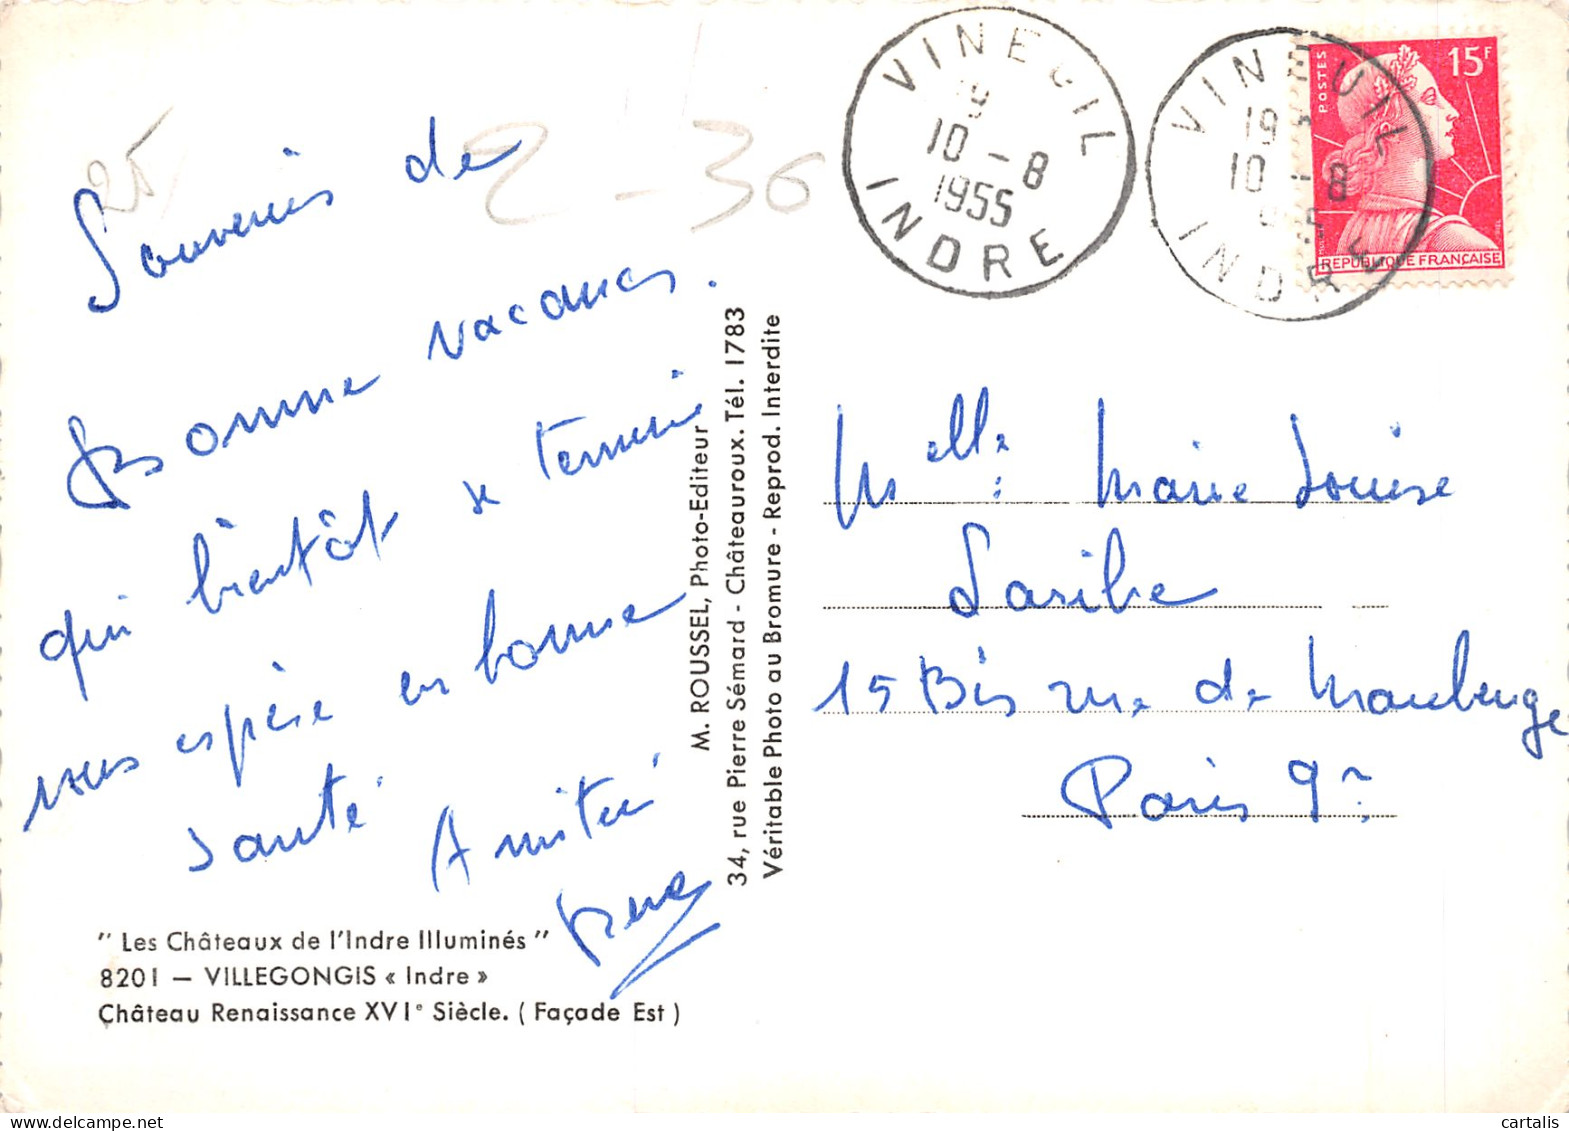 Souvenirs de
Bonne vacances.
qui bientôt se termine
vous espère en bonne
santé.
Amitié
25
2-36
" Les Châteaux de l'Indre Illuminés "
8201 — VILLEGONGIS « Indre »
Château Renaissance XVIe Siècle. ( Façade Est )
M. ROUSSEL, Photo-Editeur
34, rue Pierre Sémard - Châteauroux. Tél. 1783
Véritable Photo au Bromure - Reprod. Interdite
VINEUIL
19
10 - 8
1955
INDRE
VINEUIL
19
10 - 8
INDRE
POSTES
15F
REPUBLIQUE FRANÇAISE
Melle: Marie Louise
Laribe
15 Bis rue de Maubeuge
Paris 9e
cartalis
delcampe.net